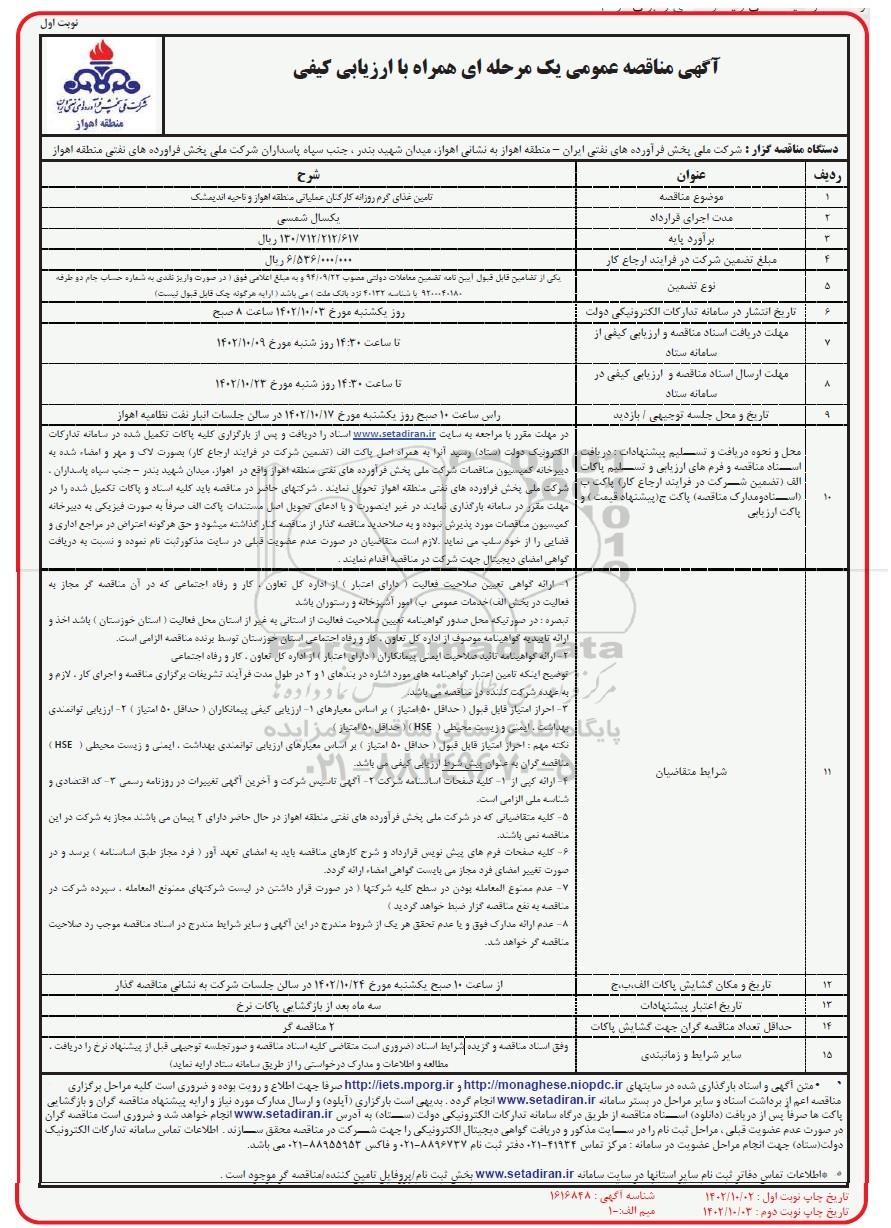 نوبت اول
آگهی مناقصه عمومی یک مرحله ای همراه با ارزیابی کیفی
منطقه اهواز
دستگاه مناقصه گزار : شرکت ملی پخش فرآورده های نفتی ایران – منطقه اهواز به نشانی اهواز، میدان شهید بندر ، جنب سپاه پاسداران شرکت ملی پخش فراورده های نفتی منطقه اهواز
ردیف عنوان شرح
۱ موضوع مناقصه تامین غذای گرم روزانه کارکنان عملیاتی منطقه اهواز و ناحیه اندیمشک
۲ مدت اجرای قرارداد یکسال شمسی
۳ برآورد پایه ۱۳۰/۷۱۲/۲۱۲/۶۱۷ ریال
۴ مبلغ تضمین شرکت در فرایند ارجاع کار ۶/۵۳۶/۰۰۰/۰۰۰ ریال
۵ نوع تضمین یکی از تضامین قابل قبول آیین نامه تضمین معاملات دولتی مصوب ۹۴/۰۹/۲۲ و به مبلغ اعلامی فوق ( در صورت واریز نقدی به شماره حساب جام دو طرفه
۹۲۰۰۰۴۰۱۸۰ با شناسه ۴۰۱۳۲ نزد بانک ملت ) می باشد ( ارایه هرگونه چک قابل قبول نیست)
۶ تاریخ انتشار در سامانه تدارکات الکترونیکی دولت روز یکشنبه مورخ ۱۴۰۲/۱۰/۰۳ ساعت ۸ صبح
۷ مهلت دریافت اسناد مناقصه و ارزیابی کیفی از
سامانه ستاد
تا ساعت ۱۴:۳۰ روز شنبه مورخ ۱۴۰۲/۱۰/۰۹
۸ مهلت ارسال اسناد مناقصه و ارزیابی کیفی در
سامانه ستاد
تا ساعت ۱۴:۳۰ روز شنبه مورخ ۱۴۰۲/۱۰/۲۳
۹ تاریخ و محل جلسه توجیهی / بازدید راس ساعت ۱۰ صبح روز یکشنبه مورخ ۱۴۰۲/۱۰/۱۷ در سالن جلسات انبار نفت نظامیه اهواز
۱۰ محل و نحوه دریافت و تسلیم پیشنهادات : دریافت
اسناد مناقصه و فرم های ارزیابی و تسلیم پاکات
الف (تضمین شرکت در فرایند ارجاع کار) پاکت ب
(اسنادومدارک مناقصه) پاکت ج(پیشنهاد قیمت ) و
پاکت ارزیابی
در مهلت مقرر با مراجعه به سایت www.setadiran.ir اسناد را دریافت و پس از بارگزاری کلیه پاکات تکمیل شده در سامانه تدارکات
الکترونیک دولت (ستاد) رسید آنرا به همراه اصل پاکت الف (تضمین شرکت در فرایند ارجاع کار) بصورت لاک و مهر و امضاء شده به
دبیرخانه کمیسیون مناقصات شرکت ملی پخش فرآورده های نفتی منطقه اهواز واقع در اهواز، میدان شهید بندر – جنب سپاه پاسداران ،
شرکت ملی پخش فراورده های نفتی منطقه اهواز تحویل نمایند . شرکتهای حاضر در مناقصه باید کلیه اسناد و پاکات تکمیل شده را در
مهلت مقرر در سامانه بارگذاری نمایند در غیر اینصورت و یا ادعای تحویل اصل مستندات پاکت الف صرفاً به صورت فیزیکی به دبیرخانه
کمیسیون مناقصات مورد پذیرش نبوده و به صلاحدید مناقصه گذار از مناقصه کنار گذاشته میشود و حق هرگونه اعتراض در مراجع اداری و
قضایی را از خود سلب می نماید .لازم است متقاضیان در صورت عدم عضویت قبلی در سایت مذکورثبت نام نموده و نسبت به دریافت
گواهی امضای دیجیتال جهت شرکت در مناقصه اقدام نمایند .
۱۱ شرایط متقاضیان
۱- ارائه گواهی تعیین صلاحیت فعالیت ( دارای اعتبار ) از اداره کل تعاون ، کار و رفاه اجتماعی که در آن مناقصه گر مجاز به
فعالیت در بخش الف)خدمات عمومی ب) امور آشپزخانه و رستوران باشد
تبصره : در صورتیکه محل صدور گواهینامه تعیین صلاحیت فعالیت از استانی به غیر از استان محل فعالیت ( استان خوزستان ) باشد اخذ و
ارائه تاییدیه گواهینامه موصوف از اداره کل تعاون ، کار و رفاه اجتماعی استان خوزستان توسط برنده مناقصه الزامی است.
۲- ارائه گواهینامه تائید صلاحیت ایمنی پیمانکاران ( دارای اعتبار ) از اداره کل تعاون ، کار و رفاه اجتماعی
توضیح اینکه تامین اعتبار گواهینامه های مورد اشاره در بندهای ۱ و ۲ در طول مدت فرآیند تشریفات برگزاری مناقصه و اجرای کار ، لازم و
به عهده شرکت کننده در مناقصه می باشد.
۳- احراز امتیاز قابل قبول ( حداقل ۵۰ امتیاز ) بر اساس معیارهای ۱- ارزیابی کیفی پیمانکاران ( حداقل ۵۰ امتیاز ) ۲- ارزیابی توانمندی
بهداشت ، ایمنی و زیست محیطی ( HSE ) ( حداقل ۵۰ امتیاز )
نکته مهم : احراز امتیاز قابل قبول ( حداقل ۵۰ امتیاز ) بر اساس معیارهای ارزیابی توانمندی بهداشت ، ایمنی و زیست محیطی ( HSE )
مناقصه گران به عنوان پیش شرط ارزیابی کیفی می باشد.
۴- ارائه کپی از ۱- کلیه صفحات اساسنامه شرکت ۲- آگهی تاسیس شرکت و آخرین آگهی تغییرات در روزنامه رسمی ۳- کد اقتصادی و
شناسه ملی الزامی است.
۵- کلیه متقاضیانی که در شرکت ملی پخش فرآورده های نفتی منطقه اهواز در حال حاضر دارای ۲ پیمان می باشند مجاز به شرکت در این
مناقصه نمی باشند.
۶- کلیه صفحات فرم های پیش نویس قرارداد و شرح کارهای مناقصه باید به امضای تعهد آور ( فرد مجاز طبق اساسنامه ) برسد و در
صورت تغییر امضای فرد مجاز می بایست گواهی امضاء ارائه گردد.
۷- عدم ممنوع المعامله بودن در سطح کلیه شرکتها ( در صورت قرار داشتن در لیست شرکتهای ممنوع المعامله ، سپرده شرکت در
مناقصه به نفع مناقصه گزار ضبط خواهد گردید )
۸- عدم ارائه مدارک فوق و یا عدم تحقق هر یک از شروط مندرج در این آگهی و سایر شرایط مندرج در اسناد مناقصه موجب رد صلاحیت
مناقصه گر خواهد شد.
۱۲ تاریخ و مکان گشایش پاکات الف،ب،ج از ساعت ۱۰ صبح یکشنبه مورخ ۱۴۰۲/۱۰/۲۴ در سالن جلسات شرکت به نشانی مناقصه گذار
۱۳ تاریخ اعتبار پیشنهادات سه ماه بعد از بازگشایی پاکات نرخ
۱۴ حداقل تعداد مناقصه گران جهت گشایش پاکات ۲ مناقصه گر
۱۵ سایر شرایط و زمانبندی وفق اسناد مناقصه و گزیده شرایط اسناد (ضروری است متقاضی کلیه اسناد مناقصه و صورتجلسه توجیهی قبل از پیشنهاد نرخ را دریافت ،
مطالعه و اطلاعات و مدارک درخواستی را از طریق سامانه ستاد ارایه نماید)
•متن آگهی و اسناد بارگذاری شده در سایتهای http://monaghese.niopdc.ir و http://iets.mporg.ir صرفا جهت اطلاع و رویت بوده و ضروری است کلیه مراحل برگزاری
مناقصه اعم از برداشت اسناد و سایر مراحل در بستر سامانه www.setadiran.ir انجام گردد . بدیهی است بارگزاری (آپلود) و ارسال مدارک مورد نیاز و ارایه پیشنهاد مناقصه گران و بازگشایی
پاکت ها صرفا پس از دریافت (دانلود) اسناد مناقصه از طریق درگاه سامانه تدارکات الکترونیکی دولت (ستاد) به آدرس www.setadiran.ir انجام خواهد شد و ضروری است مناقصه گران
در صورت عدم عضویت قبلی ، مراحل ثبت نام را در سایت مذکور و دریافت گواهی دیجیتال الکترونیکی را جهت شرکت در مناقصه محقق سازند . اطلاعات تماس سامانه تدارکات الکترونیک
دولت(ستاد) جهت انجام مراحل عضویت در سامانه : مرکز تماس ۴۱۹۳۴-۰۲۱ دفتر ثبت نام ۸۸۹۶۷۳۷-۰۲۱ و فاکس ۸۸۹۵۵۹۵۳-۰۲۱ می باشد.
*اطلاعات تماس دفاتر ثبت نام سایر استانها در سایت سامانه www.setadiran.ir بخش ثبت نام/پروفایل تامین کننده/مناقصه گر موجود است .
تاریخ چاپ نوبت اول : ۱۴۰۲/۱۰/۰۲ شناسه آگهی : ۱۶۱۶۸۴۸
تاریخ چاپ نوبت دوم : ۱۴۰۲/۱۰/۰۳ میم الف:-۱۰
ParsNamadData
پایگاه اطلاع رسانی مناقصه و مزایده
۰۲۱-۸۸۳۴۹۶۷۰-۵